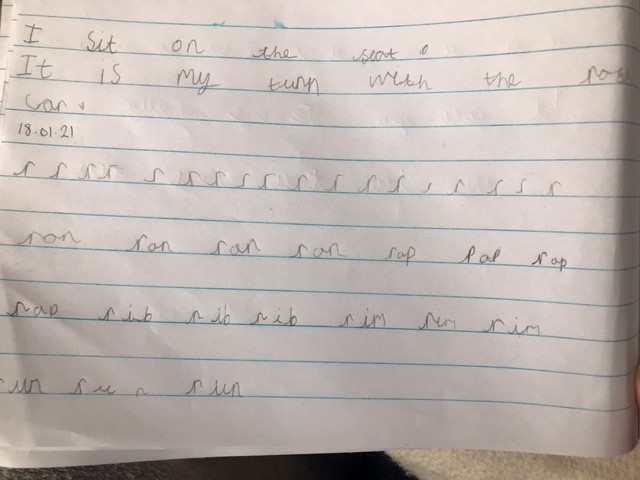 I sit on the seat.
It is my turn with the
car.
18.01.21
r r r r r r r r r r r r r r r r r r
ran ran ran ran rap rap rap
rap rib rib rib rim rim rim
un run run